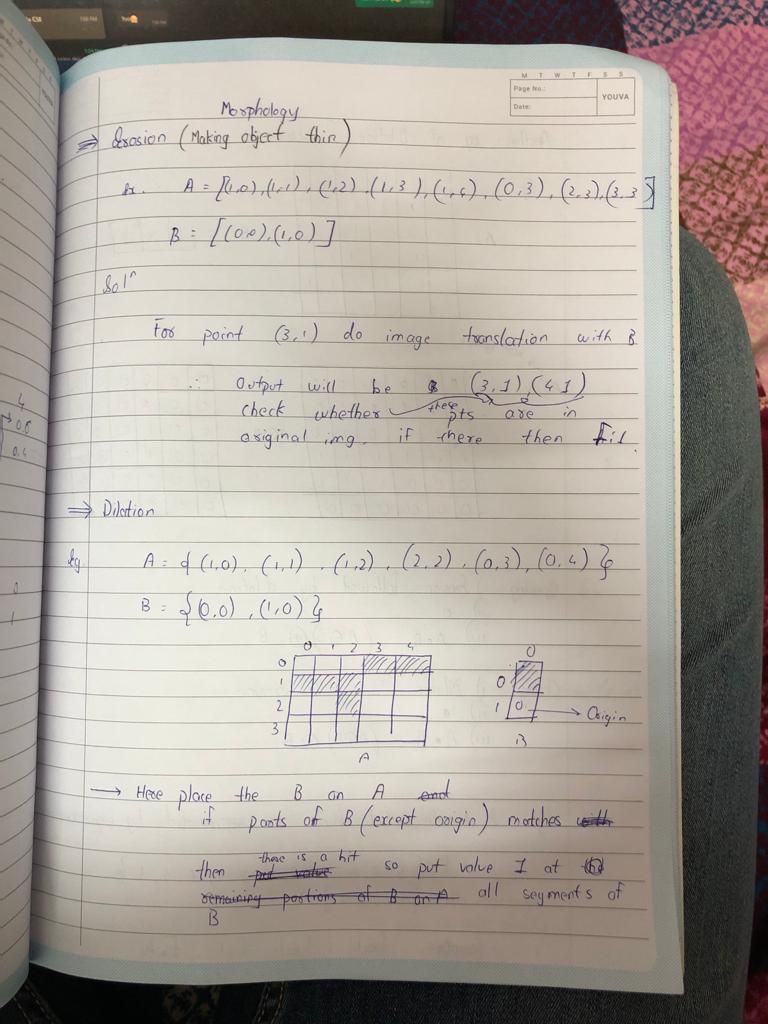 M T W T F S S
Page No.:
Date:
YOUVA
Morphology
⇒ Erosion (Making object thin)
Ex. A = [(1,0), (1,1), (1,2), (1,3), (1,4), (0,3), (2,3), (3,3)]
B = [(0,0), (1,0)]
Solⁿ
For point (3,1) do image translation with B
∴ Output will be (3,1), (4,1)
check whether these pts are in
original img. if there then
⇒ Dilation
Eg. A = { (1,0), (1,1), (1,2), (2,2), (0,3), (0,4) }
B = { (0,0), (1,0) }
0 1 2 3 4
0
1
2
3
A
0
0
1 0 → Origin
B
→ Here place the B on A end
if parts of B (except origin) matches with
there is a hit
then put value so put value 1 at the
remaining portions of B on A all segments of
B